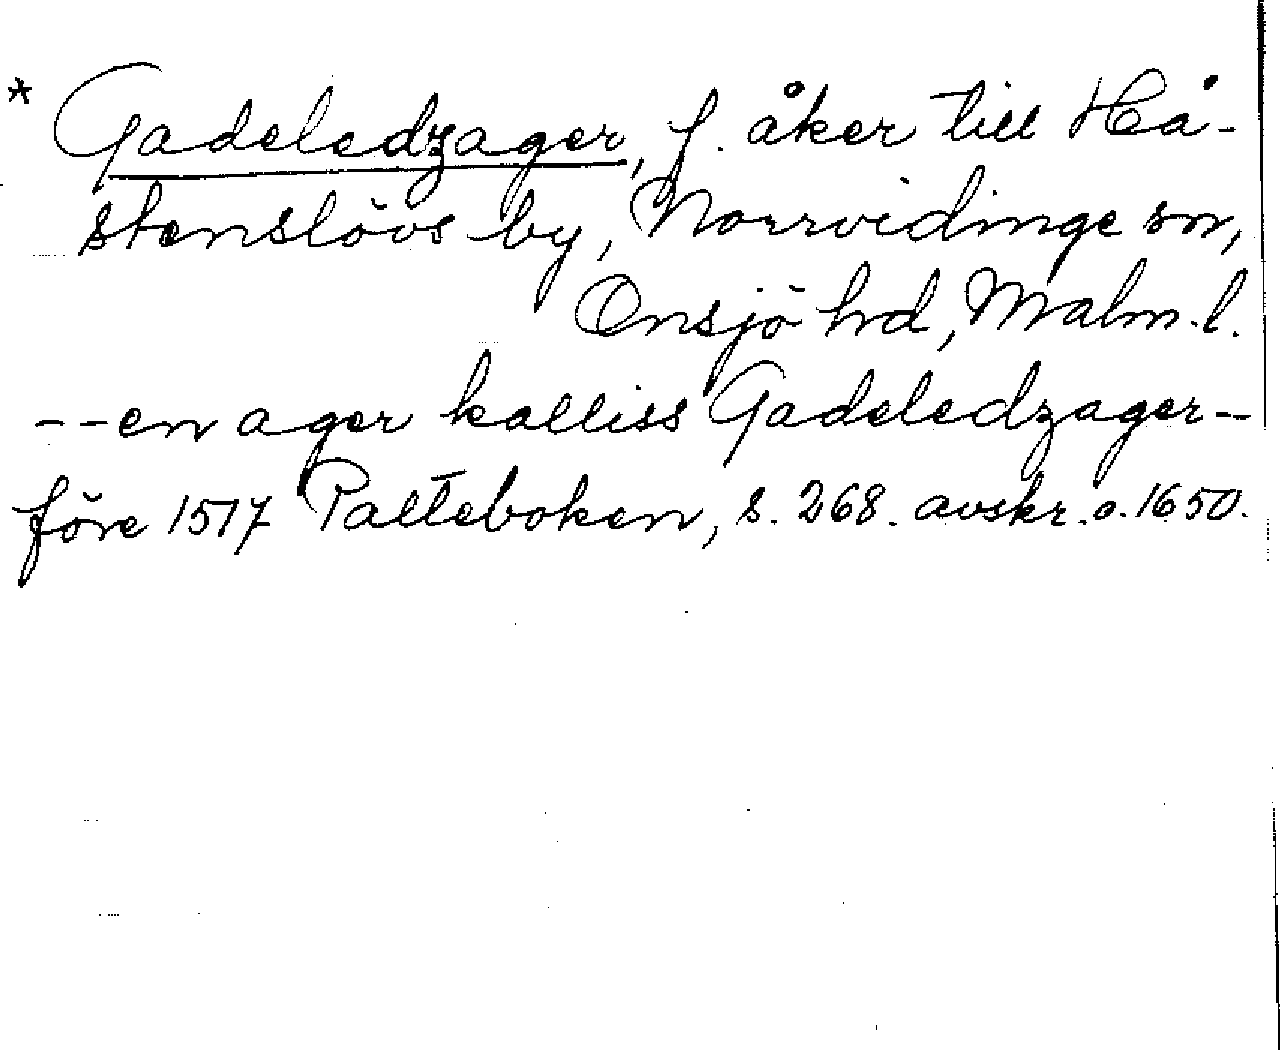 * Gadeledzager, f. åker till Hå-
stenslövs by, Norrvidinge sn,
Onsjö hd, Malm.l.
--en ager kalliss Gadeledzager--
före 1517 Palteboken, s. 268. avskr. o. 1650.